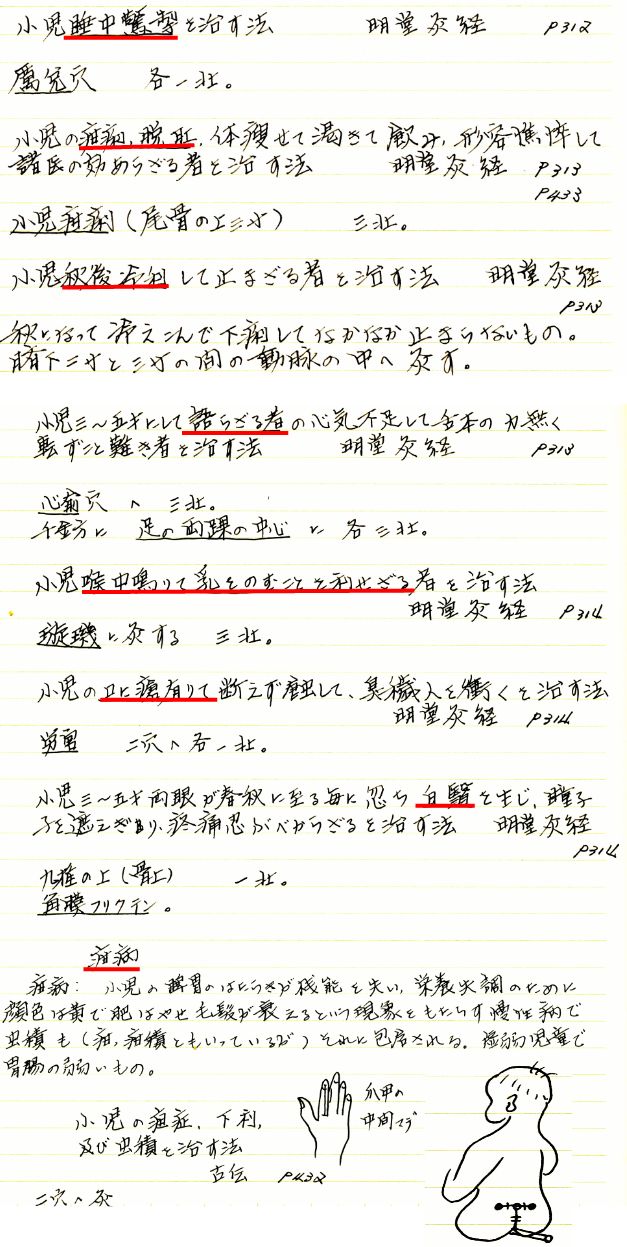 小児睡中驚掣を治す法　明堂灸経　P312
厲兌穴　各一壮。
小児の疳痢、脱肛、体痩せて渇きて飲み、形容憔悴して
諸医の効あらざる者を治す法　明堂灸経　P313
P433
小児疳痢（尾骨の上三寸）　三壮。
小児秋後冷利して止まざる者を治す法　明堂灸経
P313
秋になって冷えこんで下痢してなかなか止まらないもの。
臍下二寸と三寸の間の動脈の中へ灸す。
小児三～五才にして語らざる者の心気不足して舌本の力無く
転ずこと難き者を治す法　明堂灸経　P313
心兪穴へ三壮。
千金方に　足の両踝の中心に各三壮。
小児喉中鳴りて乳をのむことを利せざる者を治す法
明堂灸経　P314
璇璣に灸する　三壮。
小児の口に瘡有りて断えず、臭穢人を衝くを治す法
明堂灸経　P314
労宮　二穴へ各一壮。
小児三～五才両眼が春秋に至る毎に忽ち白翳を生じ、瞳子
を遮えぎり、疼痛忍ぶべからざるを治す法　明堂灸経
P314
九椎の上（骨上）　一壮。
角膜フリクテン。
疳病
疳病：小児の脾胃のはたらきが機能を失い、栄養失調のために
顔色は黄で肥はやせ毛髪が衰えるという現象をもたらす慢性病で
虫積も（疳、疳積ともいっているが）それに包含される。虚弱児童で
胃腸の弱いもの。
小児の疳症、下利、
及び虫積を治す法
古伝　P432
二穴へ灸
爪甲の
中間マデ